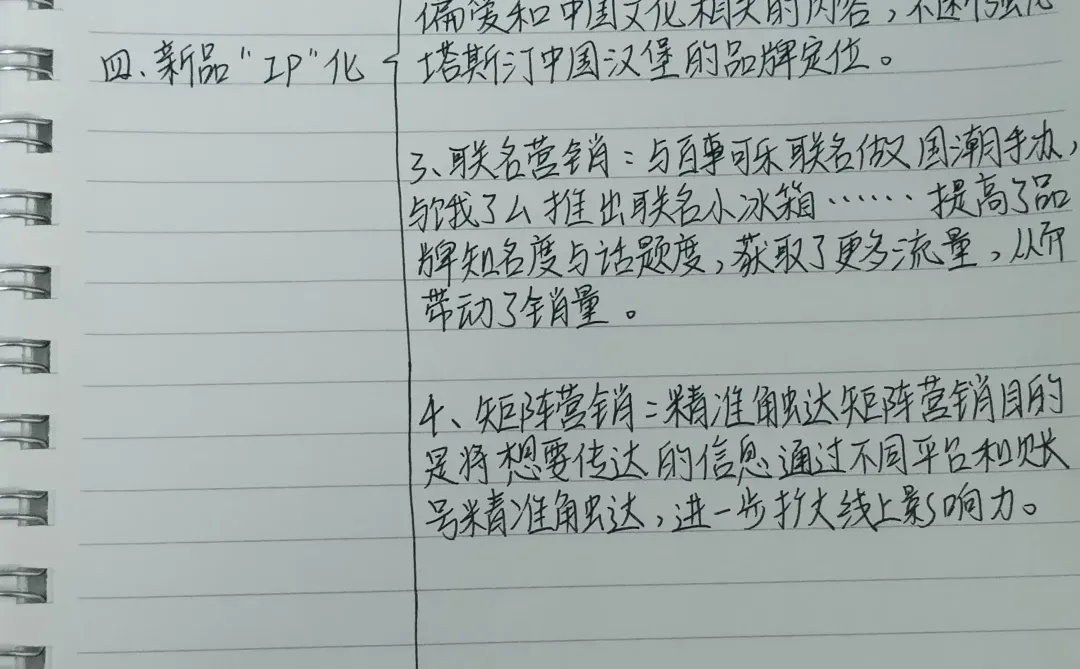 偏爱和中国文化相关的内容，不断强化
四、新品“IP”化
塔斯汀中国汉堡的品牌定位。
3、联名营销：与百事可乐联名做国潮手办，
与饿了么推出联名小冰箱……提高了品
牌知名度与话题度，获取了更多流量，从而
带动了销量。
4、矩阵营销：精准触达矩阵营销目的
是将想要传达的信息通过不同平台和账
号精准触达，进一步扩大线上影响力。